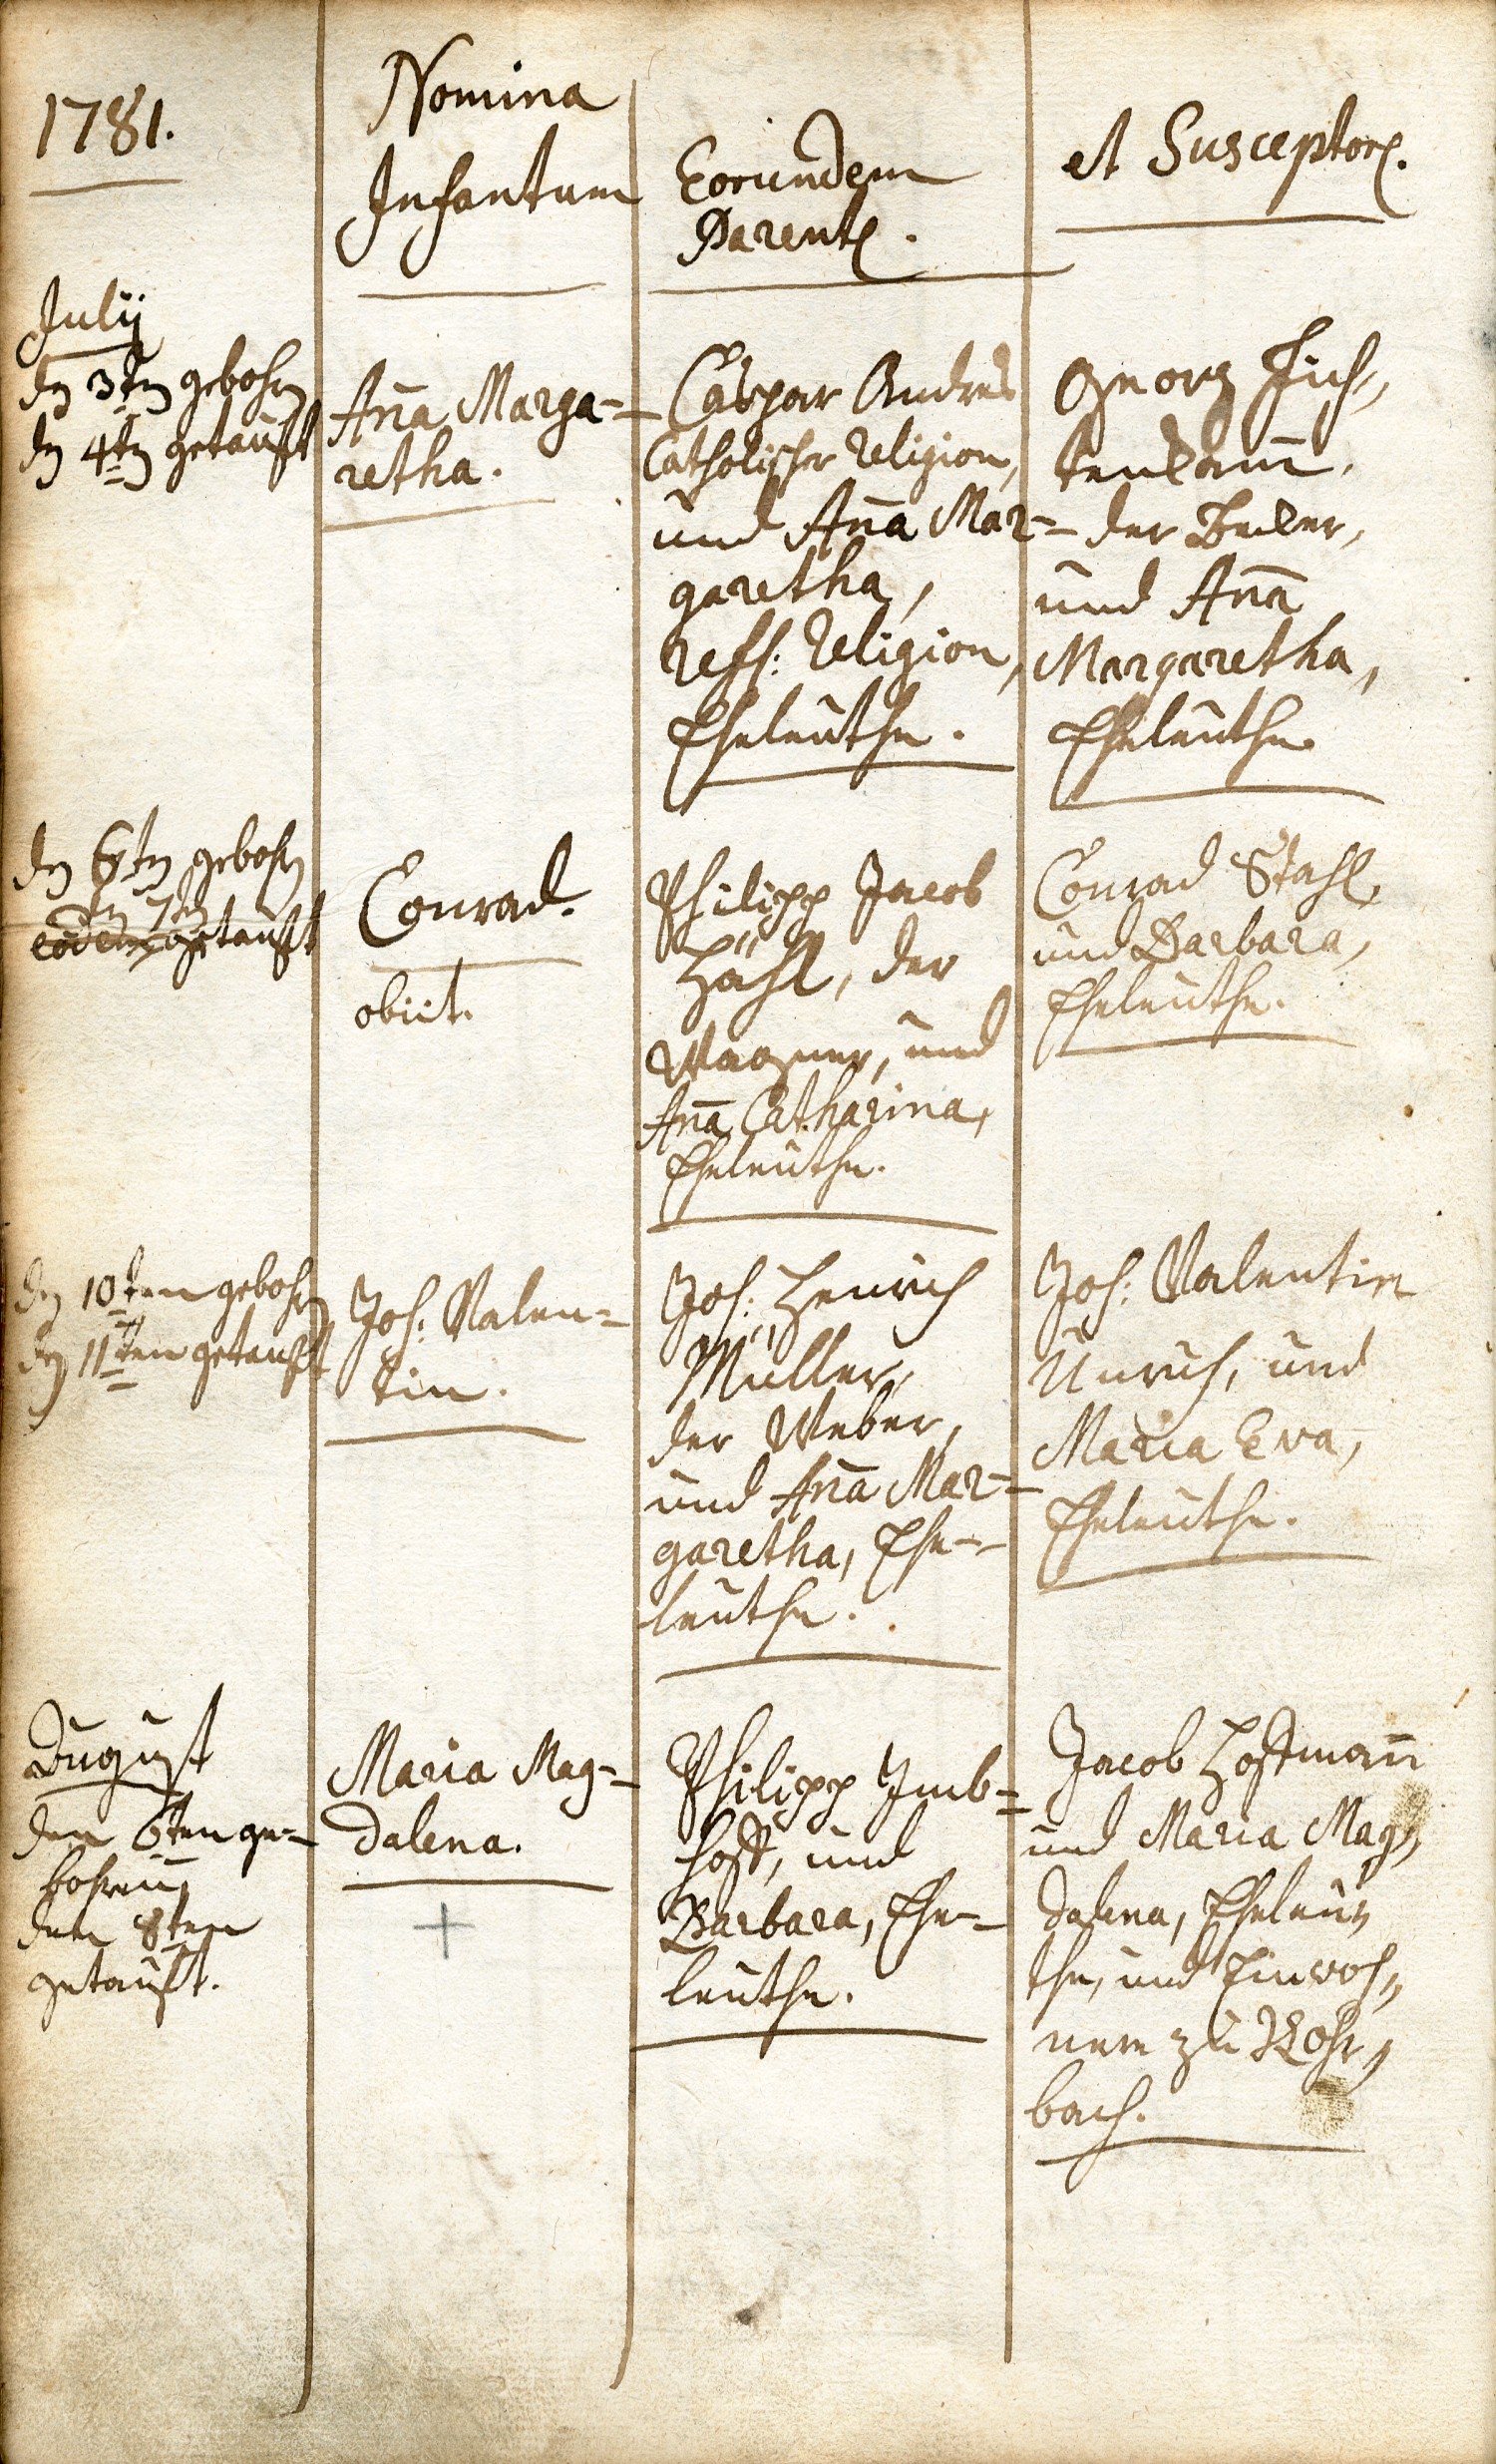 1781.
Nomina
Infantum
Eorundem
Parent.
et Susceptor.
July
den 3ten gebohren
den 4ten getauft
Aña Marga-
retha.
Caspar Andres
Catholischer Religion,
und Aña Mar-
garetha,
reff: Religion,
Eheleuthe.
Georg Fich-
tenkam̄,
der Becker,
und Aña
Margaretha,
Eheleuthe.
den 6ten gebohren
den 7ten
eodem getauft
Conrad.
obiit.
Philipp Jacob
Höhl, der
Wagner, und
Aña Catharina,
Eheleuthe.
Conrad Stahl,
und Barbara,
Eheleuthe.
den 10ten gebohren
den 11ten getauft
Joh: Valen-
tin.
Joh: Henrich
Müller,
der Weber,
und Aña Mar-
garetha, Ehe-
leuthe.
Joh: Valentin
Unrich, und
Maria Eva,
Eheleuthe.
August
den 6ten ge-
bohren,
den 8ten
getauft.
Maria Mag-
dalena.
+
Philipp Imb-
hoff, und
Barbara, Ehe-
leuthe.
Jacob Hoffmañ
und Maria Mag-
dalena, Eheleu-
the, und Einwoh-
nere zu Rohr-
bach.